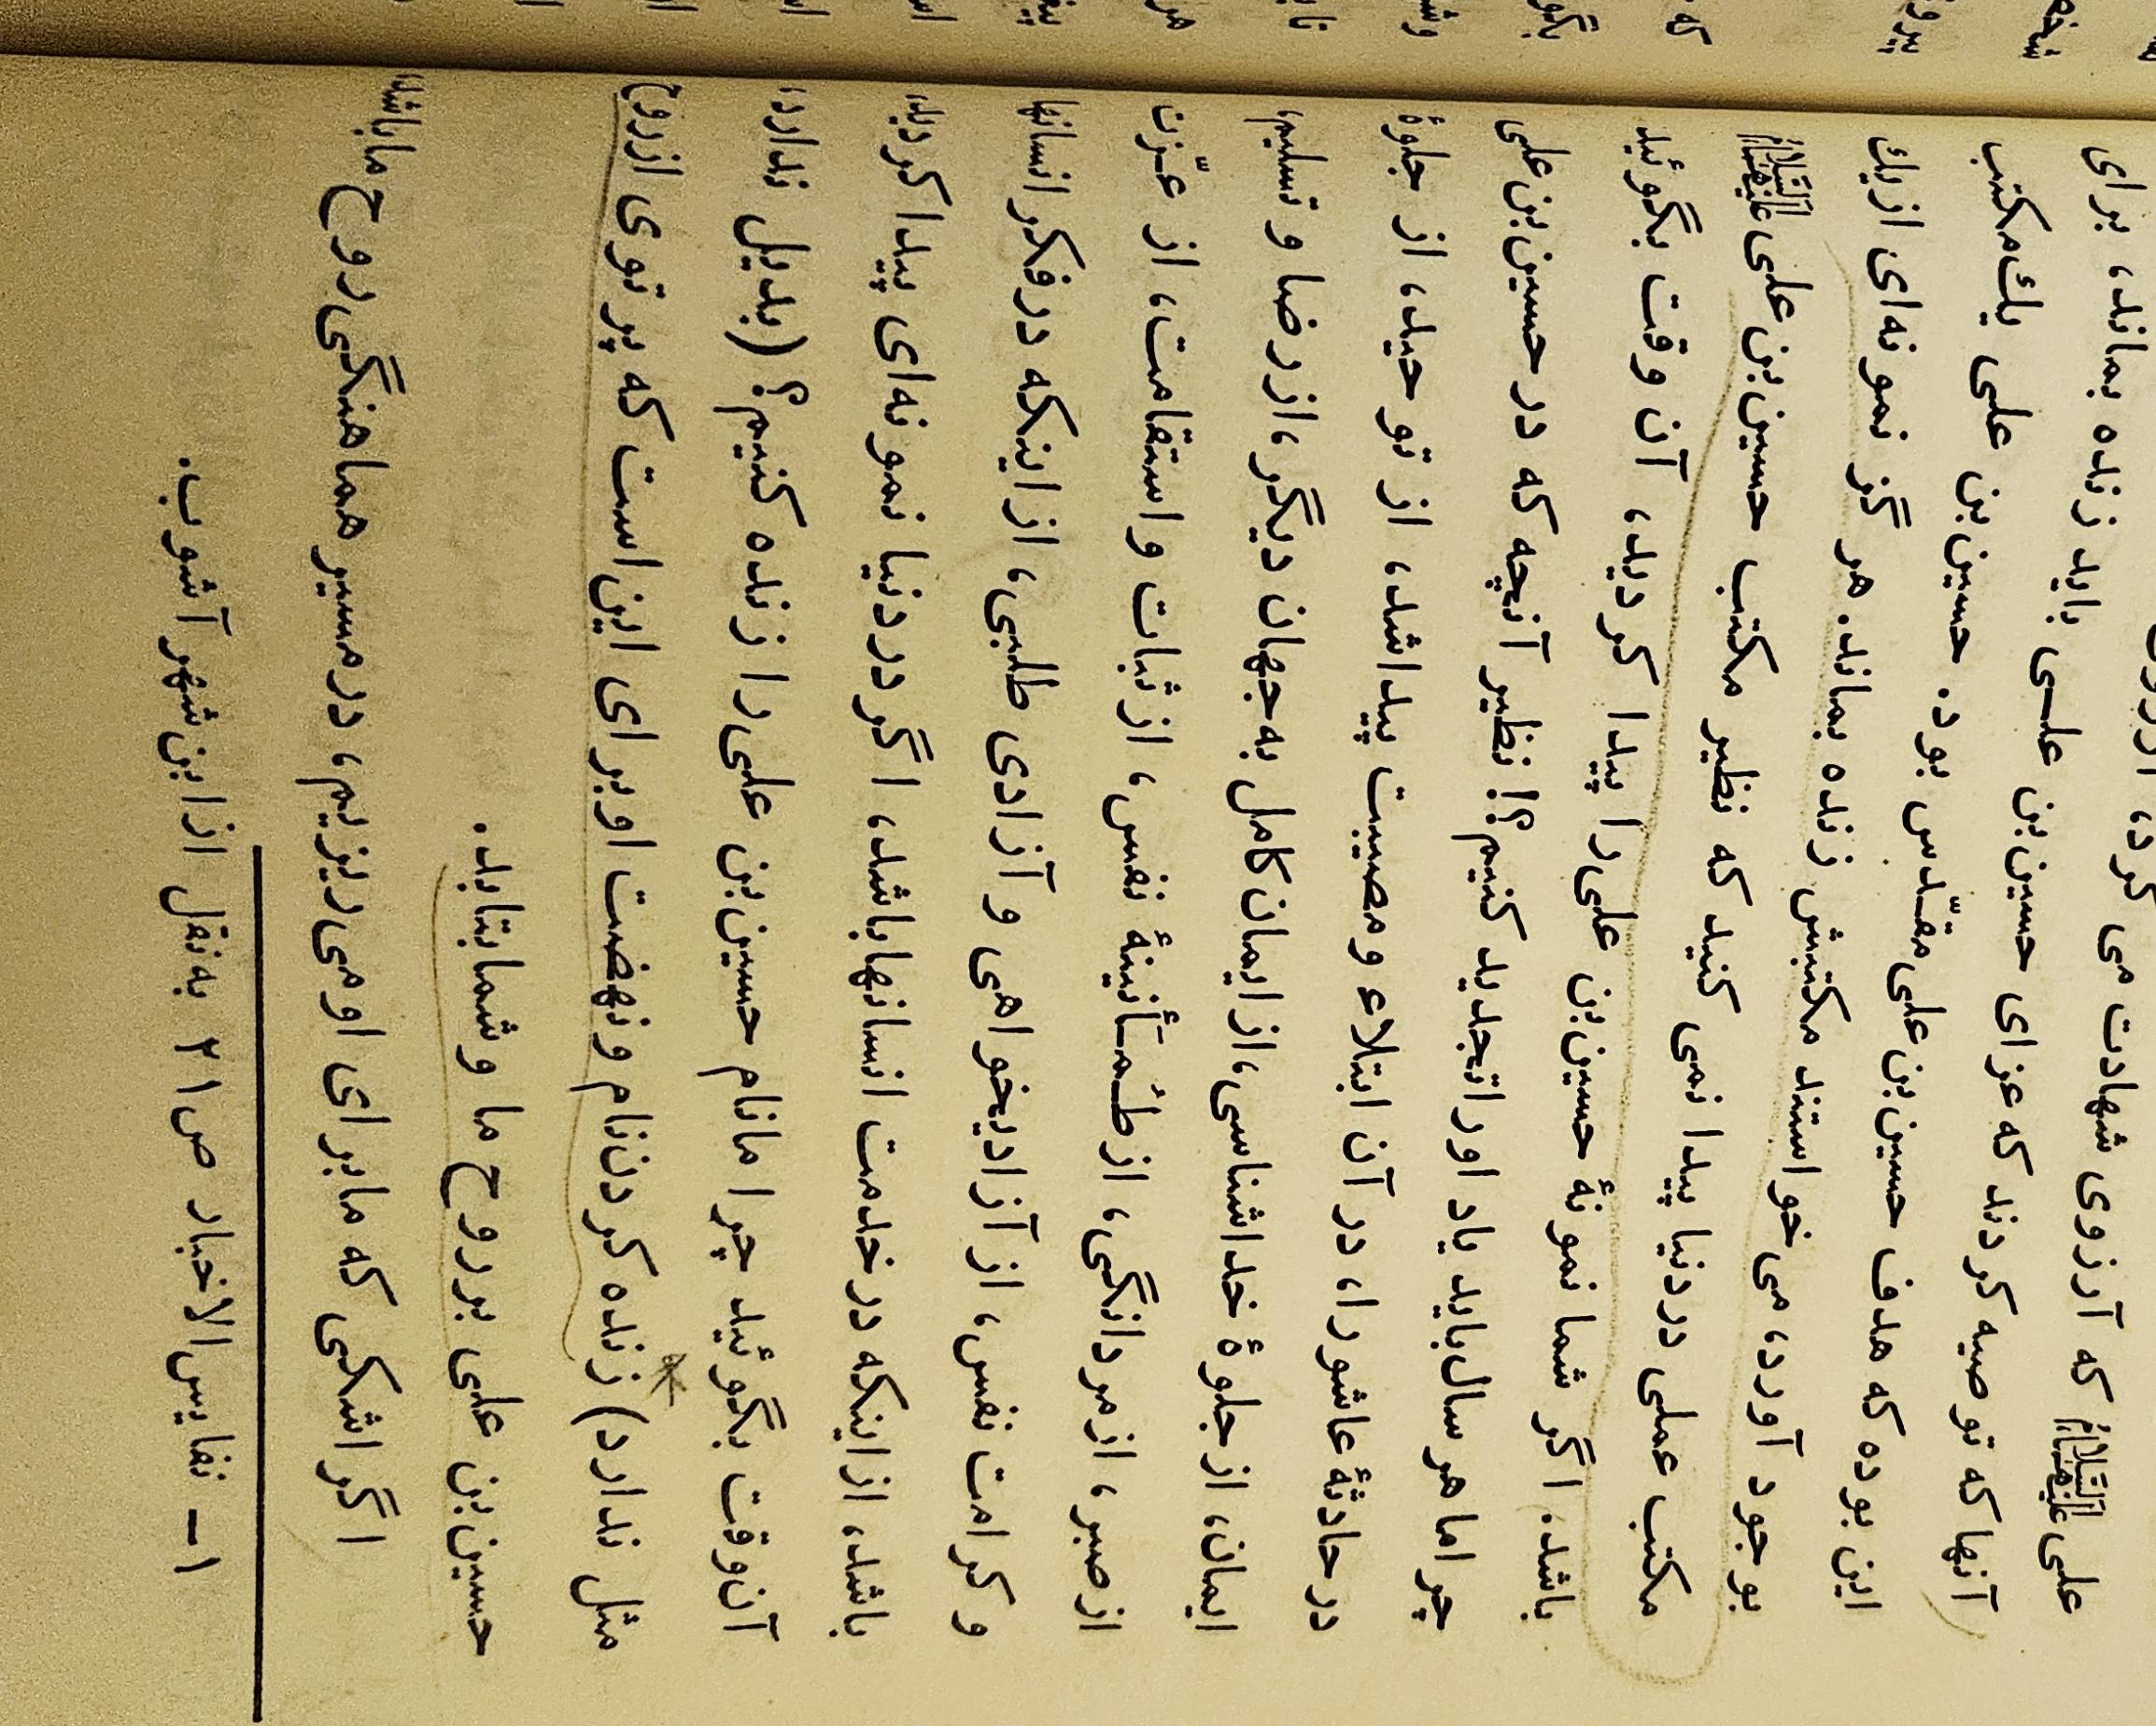 علی علیه‌السلام که آرزوی شهادت می کرد،
آنها که توصیه کردند که عزای حسین‌بن علی باید زنده بماند، برای
این بوده که هدف حسین‌بن‌علی مقدّس بوده. حسین‌بن علی یك‌مکتب
بوجود آورد، می خواستند مکتبش زنده بماند. هر گز نمونه‌ای ازیك
مکتب عملی دردنیا پیدا نمی کنید که نظیر مکتب حسین‌بن علی علیه‌السلام
باشد. اگر شما نمونهٔ حسین‌بن علی‌را پیدا کردید، آن وقت بگوئید
چرا ماهر سال‌باید یاد اوراتجدید کنیم؟! نظیر آنچه که در حسین‌بن‌علی
درحادثهٔ عاشورا، در آن ابتلاء ومصیبت پیداشد، از توحید، از جلوهٔ
ایمان، ازجلوهٔ خداشناسی، ازایمان‌کامل به‌جهان دیگر، ازرضا وتسلیم،
ازصبر، ازمردانگی، ازطُمَأنینهٔ نفس، ازثبات واستقامت، از عـّزت
و کرامت نفس، از آزادیخواهی و آزادی طلبی، ازاینکه درفکرانسانها
باشد، ازاینکه درخدمت انسانهاباشد، اگردردنیا نمونه‌ای پیدا کردید،
آن‌وقت بگوئید چرا مانام حسین‌بن علی‌را زنده کنیم؟ (بدیل ندارد،
مثل ندارد) زنده کردن‌نام ونهضت اوبرای این‌است که پرتوی ازروح
حسین‌بن علی برروح ما وشمابتابد.
اگراشکی که مابرای اومی‌ریزیم، درمسیرهماهنگی‌روح ماباشد
۱ـ نفایس‌الاخبار ص۳۱ به‌نقل ازابن‌شهرآشوب.